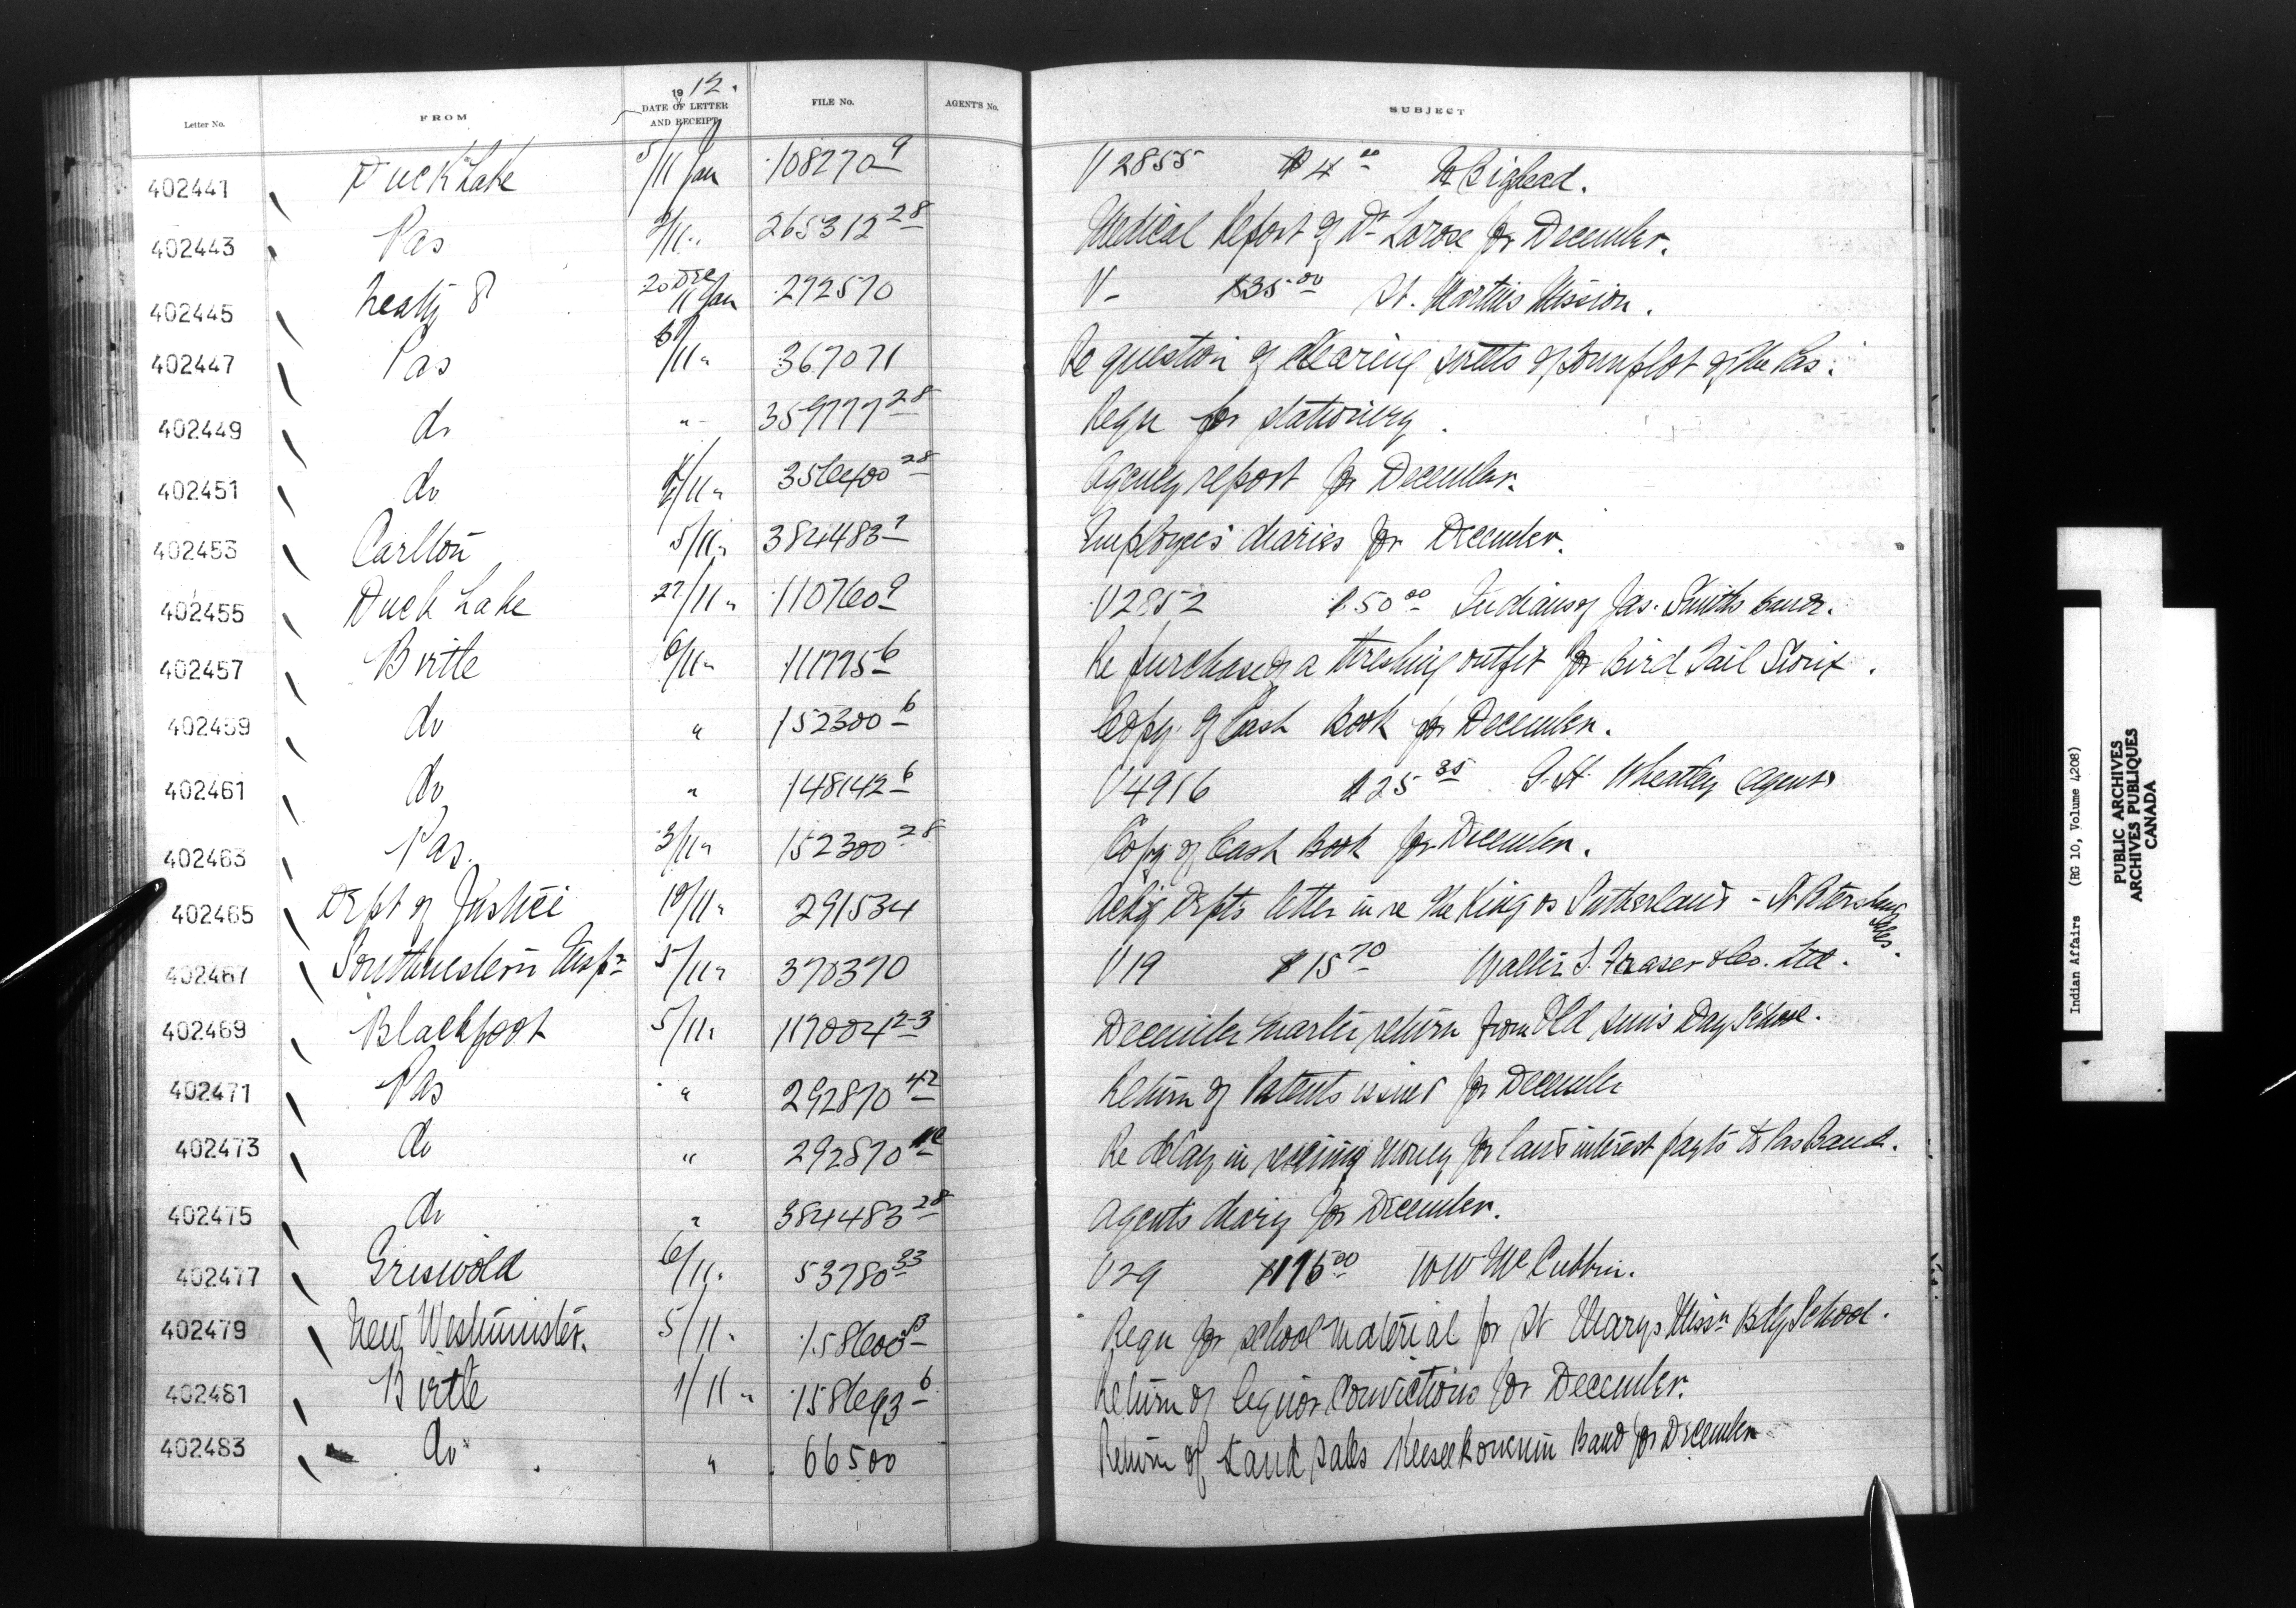 1912.
Letter No. FROM DATE OF LETTER AND RECEIPT FILE No. AGENT'S No. SUBJECT
402441 Duck Lake 5/11 Jan 108270-9 V 2855 $4.00 Bighead.
402443 Pas 2/11 " 265312-28 Medical Report of Dr Larose for December.
402445 Treaty 8 20 Dec 11 Jan 272570 V - $35.00 St. Martins Mission.
402447 Pas 6/11 " 367071 Re question of clearing streets of townplot of The Pas.
402449 do " 359777-28 Requ for stationery.
402451 do /11 " 356400-28 Agency report for December.
402453 Carlton 5/11 " 384483-7 Employees' diaries for December.
402455 Duck Lake 27/11 " 110760-9 V 2852 $50.00 Indians of Jas. Smiths Band.
402457 Birtle 6/11 " 111775-6 Re purchase of a threshing outfit for Bird Tail Sioux.
402459 do " 152300-6 Copy of Cash Book for December.
402461 do " 148142-6 V 4916 $25.35 G. H. Wheatley Agent
402463 Pas. 3/11 " 152300-28 Copy of Cash Book for December.
402465 Dept of Justice 10/11 " 291534 Ackg Depts letter in re The King vs Sutherland - St Peters
402467 Southwestern Insp. 5/11 " 370370 V 19 $15.70 Walter S. Fraser & Co. Ltd.
402469 Blackfoot 5/11 " 117004-23 December Quarter return from Old Sun's Day School.
402471 Pas " 292870-42 Return of Patents issued for December
402473 do " 292870 Re delay in receiving money for land interest payts to Pas Band.
402475 do " 384483-28 Agents diary for December.
402477 Griswold 6/11 " 53780-33 V 29 $196.00 W W McCubbin.
402479 New Westminster. 5/11 " 158600-13 Requ for school material for St Marys Missn Bdg School.
402481 Birtle 1/11 " 158693-6 Return of liquor Convictions for December.
402483 do " 66500 Return of Land Sales Keeseekowenin Band for December
Indian Affairs (RG 10, Volume 4208)
PUBLIC ARCHIVES
ARCHIVES PUBLIQUES
CANADA